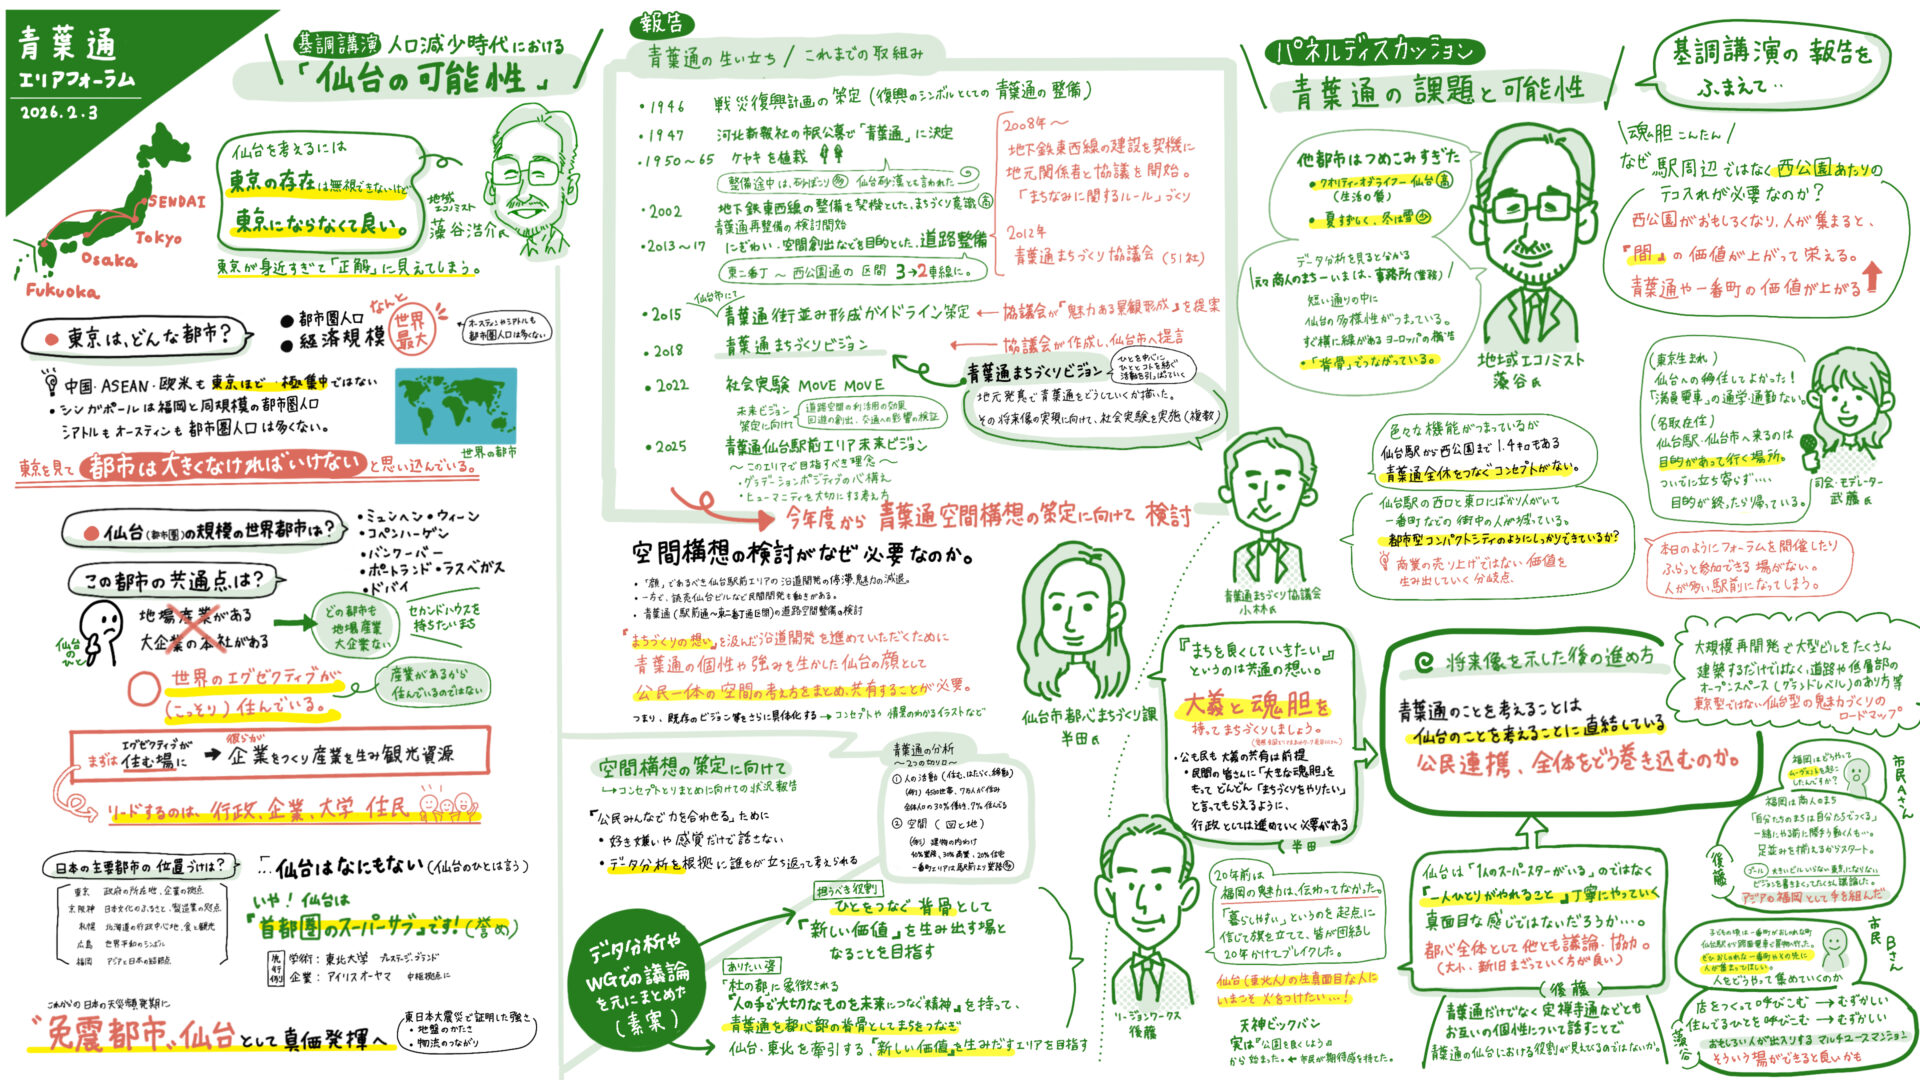 青葉通
エリアフォーラム
2026.2.3
SENDAI
Tokyo
Osaka
Fukuoka
基調講演 人口減少時代における
「仙台の可能性」
仙台を考えるには
東京の存在は無視できないけど
東京にならなくて良い。
東京が身近すぎて「正解」に見えてしまう。
地域
エコノミスト
藻谷浩介氏
東京は、どんな都市？
● 都市圏人口
● 経済規模
なんと
世界
最大
オースティンやシアトルも
都市圏人口は多くない
中国・ASEAN・欧米も 東京ほど一極集中ではない
・シンガポールは福岡と同規模の都市圏人口
シアトルもオースティンも都市圏人口は多くない。
世界の都市
東京を見て 都市は大きくなければいけない と思い込んでいる。
仙台(都市圏)の規模の世界都市は？
・ミュンヘン・ウィーン
・コペンハーゲン
・バンクーバー
・ポートランド・ラスベガス
・ドバイ
この都市の共通点は？
仙台
のひと
地場産業がある
大企業の本社がある
どの都市も
地場産業
大企業ない
セカンドハウスを
持ちたいまち
世界のエグゼクティブが
(こっそり)住んでいる。
産業があるから
住んでいるのではない
まずは
エグゼクティブが
住む場に
→
彼らが
企業をつくり産業を生み観光資源
リードするのは、行政、企業、大学 住民
日本の主要都市の位置づけは？
東京 政府の所在地、企業の拠点
京阪神 日本文化のふるさと、製造業の拠点
札幌 北海道の行政中心地、食と観光
広島 世界平和のシンボル
福岡 アジアと日本の結節点
…「仙台はなにもない(仙台のひとは言う)
いや！仙台は
『首都圏のスーパーサブ』です！(誉め)
先行例
学術：東北大学 プレステージ・ブランド
企業：アイリスオーヤマ 中枢拠点に
これからの日本の天災頻発期に
"免震都市"仙台として真価発揮へ
東日本大震災で証明した強さ
・地盤のかたさ
・物流のつながり
報告
青葉通の生い立ち / これまでの取組み
・1946 戦災復興計画の策定(復興のシンボルとしての青葉通の整備)
・1947 河北新報社の市民公募で「青葉通」に決定
・1950～65 ケヤキを植栽
整備途中は、砂ぼこり多 仙台砂漠とも言われた
・2002 地下鉄東西線の整備を契機とした、まちづくり意識高
青葉通再整備の検討開始
・2013～17 にぎわい・空間創出などを目的とした道路整備
東二番丁～西公園通の区間 3→2車線に。
2008年～
地下鉄東西線の建設を契機に
地元関係者と協議を開始。
「まちなみに関するルール」づくり
2012年
青葉通まちづくり協議会(51社)
仙台市にて
・2015 青葉通街並み形成ガイドライン策定 ← 協議会が『魅力ある景観形成』を提案
・2018 青葉通まちづくりビジョン ← 協議会が作成し、仙台市へ提言
・2022 社会実験 MOVE MOVE
未来ビジョン
策定に向けて
道路空間の利活用の効果
回遊の創出、交通への影響の検証
青葉通まちづくりビジョン
ひとを中心に
ひととコトを紡ぐ
活動を引っぱっていく
地元発意で青葉通をどうしていくか描いた。
その将来像の実現に向けて、社会実験を実施(複数)
・2025 青葉通仙台駅前エリア未来ビジョン
～このエリアで目指すべき理念～
・グラデーションポジティブの心構え
・ヒューマニティを大切にする考え方
今年度から 青葉通空間構想の策定に向けて 検討
空間構想の検討がなぜ必要なのか。
・「顔」であるべき仙台駅前エリアの沿道開発の停滞、魅力の減退。
・一方で、読売仙台ビルなど民間開発も動きがある。
・青葉通(駅前通～東二番丁通区間)の道路空間整備の検討
『まちづくりの想い』を汲んだ沿道開発を進めていただくために
青葉通の個性や強みを生かした仙台の顔として
公民一体の空間の考え方をまとめ、共有することが必要。
つまり、既存のビジョン等をさらに具体化する → コンセプトや情景のわかるイラストなど
仙台市都心まちづくり課
半田氏
空間構想の策定に向けて
↳コンセプトとりまとめに向けての状況報告
「公民みんなで力を合わせる」ために
・好き嫌いや感覚だけで話さない
・データ分析を根拠に誰もが立ち返って考えられる
青葉通の分析
～2つの切り口～
① 人の活動(住む、はたらく、移動)
(例) 4500世帯、7万人が住み
全体人口の30%働き、7%住んでる
② 空間(図と地)
(例) 建物の内わけ
40%業務、30%商業、20%住宅
一番町エリアは駅前より業務多
データ分析や
WGでの議論
を元にまとめた
(素案)
担うべき役割
ひとをつなぐ背骨として
「新しい価値」を生み出す場と
なることを目指す
ありたい姿
「杜の都に象徴される
『人の手で大切なものを未来につなぐ精神』を持って、
青葉通を都心部の背骨としてまちをつなぎ
仙台・東北を牽引する、「新しい価値」を生みだすエリアを目指す
パネルディスカッション
青葉通の課題と可能性
他都市はつめこみすぎた
・クオリティーオブライフ 仙台高
(生活の質)
・夏すずしく、冬は雪少
データ分析を見ると分かる
元々商人のまち→いまは、事務所(業務)
短い通りの中に
仙台の多様性がつまっている。
すぐ横に緑があるヨーロッパの構造
・「背骨」でつながっている。
地域エコノミスト
藻谷氏
青葉通まちづくり協議会
小林氏
色々な機能がつまっているが
仙台駅から西公園まで1.4キロもある
青葉通全体をつなぐコンセプトがない。
仙台駅の西口と東口にばかり人がいて
一番町などの街中の人が減っている。
都市型コンパクトシティのようにしっかりできているか？
商業の売り上げではない価値を
生み出していく分岐点、
『まちを良くしていきたい』
というのは共通の想い。
大義と魂胆を
持ってまちづくりしましょう。
・公も民も大義の共有は前提
・民間の皆さんに「大きな魂胆」を
もってどんどん「まちづくりをやりたい」
と言ってもらえるように、
行政としては進めていく必要がある
(半田)
リージョンワークス
後藤
20年前は
福岡の魅力は、伝わってなかった。
「暮らしやすい」というのを起点に
信じて旗を立てて、皆が団結し
20年かけてブレイクした。
仙台(東北人)の生真面目な人に
いまこそ火をつけたい…！
天神ビックバン
実は『公園を良くしよう』
から始まった。← 市民が期待感を持てた。
基調講演の報告を
ふまえて‥
魂胆 こんたん
なぜ駅周辺ではなく西公園あたりの
テコ入れが必要なのか？
西公園がおもしろくなり、人が集まると、
『間』の価値が上がって栄える。
青葉通や一番町の価値が上がる
(東京生まれ)
仙台への移住してよかった！
「満員電車」の通学・通勤ない。
(名取在住)
仙台駅・仙台市へ来るのは
目的があって行く場所。
ついでに立ち寄らず‥‥
目的が終ったら帰っている。
司会・モデレーター
武藤氏
本日のようにフォーラムを開催したり
ふらっと参加できる場がない。
人が多い駅前になってしまう。
将来像を示した後の進め方
青葉通のことを考えることは
仙台のことを考えることに直結している
公民連携、全体をどう巻き込むのか。
大規模再開発で大型ビルをたくさん
建築するだけではなく、道路や低層部の
オープンスペース(グランドレベル)のあり方等
東京型ではない仙台型の魅力づくりの
ロードマップ。
仙台は「1人のスーパースターがいる」のではなく
『一人ひとりがやれること』丁寧にやっていく
真面目な感じではないだろうか…。
都心全体として他とも議論・協力。
(大小・新旧まざっていく方が良い)
(後藤)
青葉通だけでなく定禅寺通などとも
お互いの個性について話すことで
青葉通の仙台における役割が見えてくるのではないか。
市民Aさん
福岡はどうやって
ムーブメントを起こ
したんですか？
後藤
福岡は商人のまち
「自分たちのまちは自分たちでつくる」
一緒にやる前に勝手に動く人も…。
足並みを揃えるからスタート。
ゴール 大きいビルいらない東京にならない
ビジョンを書きまくってたくさん議論した。
アジアの福岡として手を組んだ
市民Bさん
子どもの頃は一番町がおしゃれな町
ぜひおしゃれな一番町やその先に
人が集まってほしい。
人をどうやって集めていくのか
藻谷
店をつくって呼びこむ → むずかしい
住んでるひとを呼びこむ → むずかしい
おもしろい人が出入りするマルチユースマンション
そういう場ができると良いかも